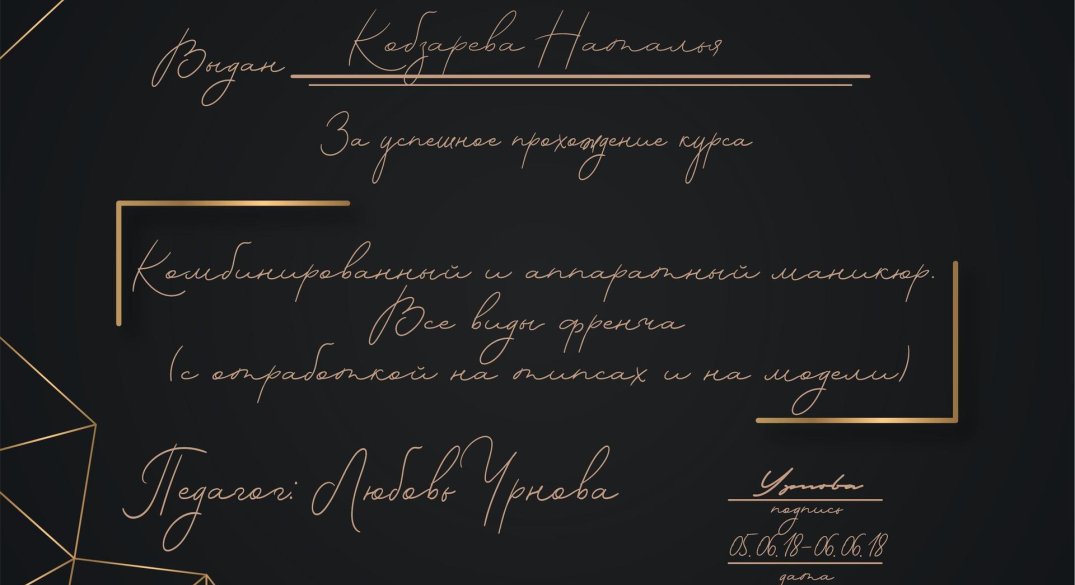 Выдан Кобзарева Наталья
За успешное прохождение курса
Комбинированный и аппаратный маникюр.
Все виды френча
(с отработкой на типсах и на модели)
Педагог: Любовь Урнова
Урнова
подпись
05.06.18-06.06.18
дата